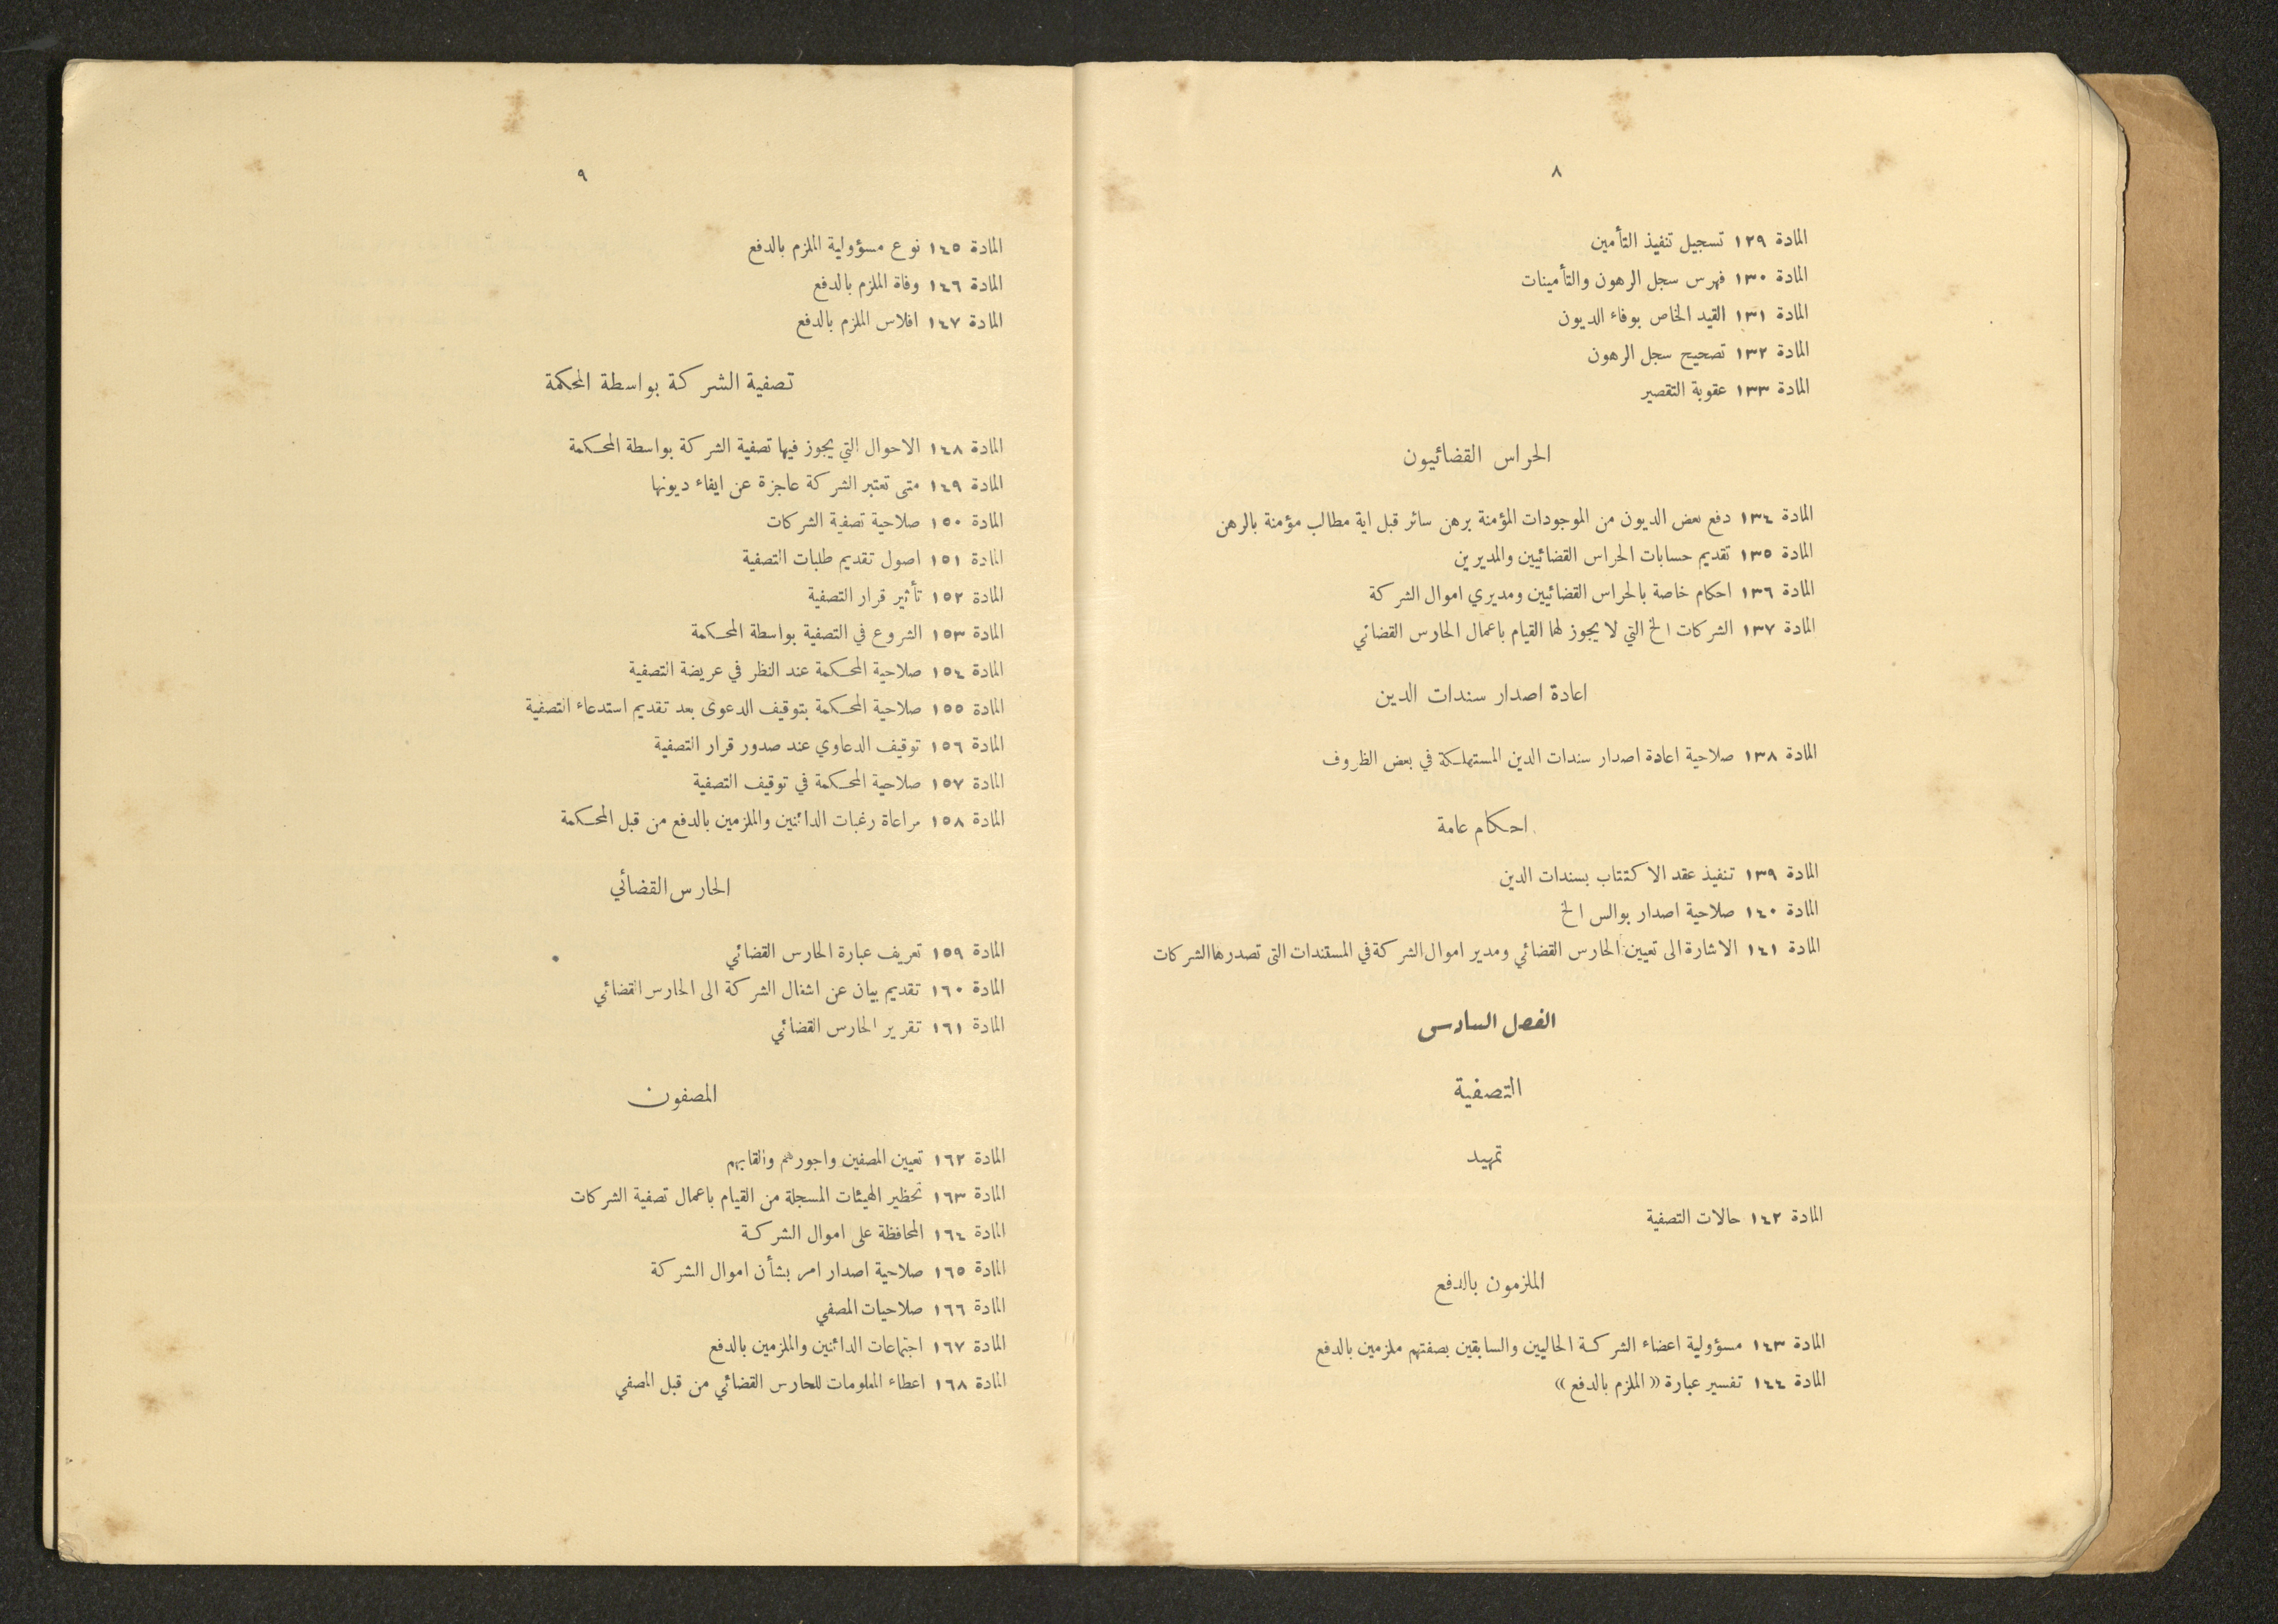 ٨
المادة ١٢٩ تسجيل تنفيذ التأمين
المادة ١٣٠ فهرس سجل الرهون والتأمينات
المادة ١٣١ القيد الخاص بوفاء الديون
المادة ١٣٢ تصحيح سجل الرهون
المادة ١٣٣ عقوبة التقصير
الحراس القضائيون
المادة ١٣٤ دفع بعض الديون من الموجودات المؤمنة برهن سائر قبل اية مطالب مؤمنة بالرهن
المادة ١٣٥ تقديم حسابات الحراس القضائيين والمديرين
المادة ١٣٦ احكام خاصة بالحراس القضائيين ومديري اموال الشركة
المادة ١٣٧ الشركات الخ التي لا يجوز لها القيام باعمال الحارس القضائي
اعادة اصدار سندات الدين
المادة ١٣٨ صلاحية اعادة اصدار سندات الدين المستهلكة في بعض الظروف
احكام عامة
المادة ١٣٩ تنفيذ عقد الاكتتاب بسندات الدين
المادة ١٤٠ صلاحية اصدار بوالس الخ
المادة ١٤١ الاشارة الى تعيين الحارس القضائي ومدير اموال الشركة في المستندات التى تصدرها الشركات
الفصل السادس
التصفية
تمهيد
المادة ١٤٢ حالات التصفية
الملزمون بالدفع
المادة ١٤٣ مسؤولية اعضاء الشركة الحاليين والسابقين بصفتهم ملزمين بالدفع
المادة ١٤٤ تفسير عبارة «الملزم بالدفع»
٩
المادة ١٤٥ نوع مسؤولية الملزم بالدفع
المادة ١٤٦ وفاة الملزم بالدفع
المادة ١٤٧ افلاس الملزم بالدفع
تصفية الشركة بواسطة المحكمة
المادة ١٤٨ الاحوال التي يجوز فيها تصفية الشركة بواسطة المحكمة
المادة ١٤٩ متى تعتبر الشركة عاجزة عن ايفاء ديونها
المادة ١٥٠ صلاحية تصفية الشركات
المادة ١٥١ اصول تقديم طلبات التصفية
المادة ١٥٢ تأثير قرار التصفية
المادة ١٥٣ الشروع في التصفية بواسطة المحكمة
المادة ١٥٤ صلاحية المحكمة عند النظر في عريضة التصفية
المادة ١٥٥ صلاحية المحكمة بتوقيف الدعوى بعد تقديم استدعاء التصفية
المادة ١٥٦ توقيف الدعاوي عند صدور قرار التصفية
المادة ١٥٧ صلاحية المحكمة في توقيف التصفية
المادة ١٥٨ مراعاة رغبات الدائنين والملزمين بالدفع من قبل المحكمة
الحارس القضائي
المادة ١٥٩ تعريف عبارة الحارس القضائي
المادة ١٦٠ تقديم بيان عن اشغال الشركة الى الحارس القضائي
المادة ١٦١ تقرير الحارس القضائي
المصفون
المادة ١٦٢ تعيين المصفين واجورهم والقابهم
المادة ١٦٣ تحظير الهيئات المسجلة من القيام باعمال تصفية الشركات
المادة ١٦٤ المحافظة على اموال الشركة
المادة ١٦٥ صلاحية اصدار امر بشأن اموال الشركة
المادة ١٦٦ صلاحيات المصفي
المادة ١٦٧ اجتماعات الدائنين والملزمين بالدفع
المادة ١٦٨ اعطاء المعلومات للحارس القضائي من قبل المصفي